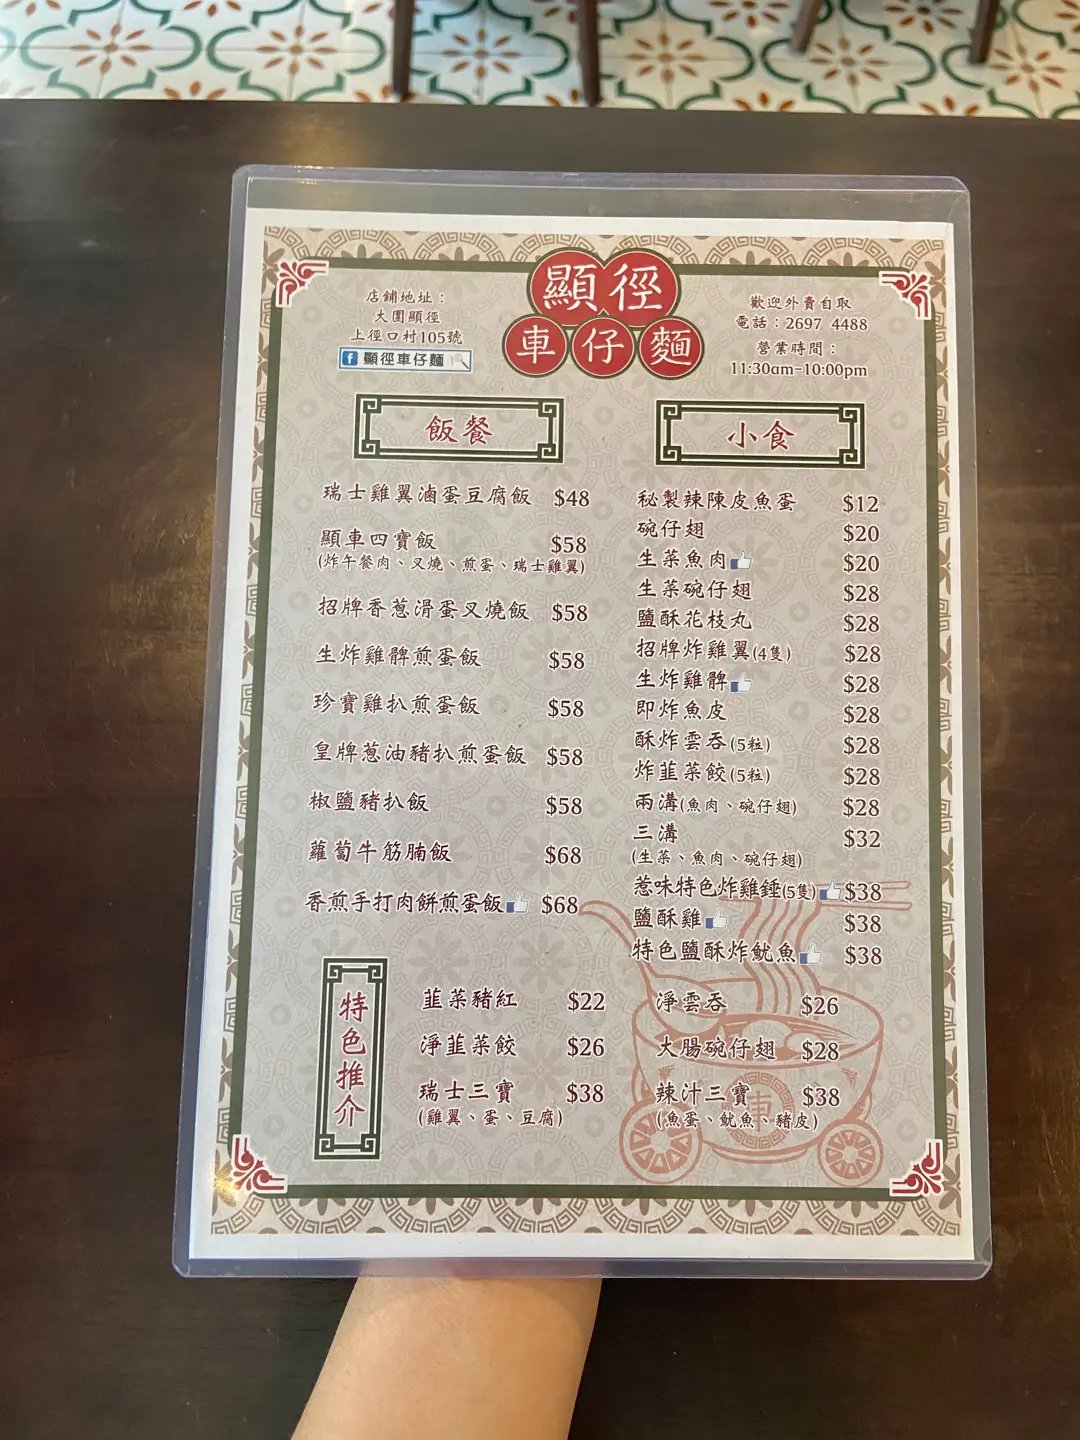 顯徑
車仔麵
店鋪地址：
大圍顯徑
上徑口村105號
f 顯徑車仔麵
歡迎外賣自取
電話：2697 4488
營業時間：
11:30am-10:00pm
飯餐
瑞士雞翼滷蛋豆腐飯 $48
顯車四寶飯 $58
(炸午餐肉、叉燒、煎蛋、瑞士雞翼)
招牌香葱滑蛋叉燒飯 $58
生炸雞髀煎蛋飯 $58
珍寶雞扒煎蛋飯 $58
皇牌葱油豬扒煎蛋飯 $58
椒鹽豬扒飯 $58
蘿蔔牛筋腩飯 $68
香煎手打肉餅煎蛋飯 $68
小食
秘製辣陳皮魚蛋 $12
碗仔翅 $20
生菜魚肉 $20
生菜碗仔翅 $28
鹽酥花枝丸 $28
招牌炸雞翼(4隻) $28
生炸雞髀 $28
即炸魚皮 $28
酥炸雲吞(5粒) $28
炸韮菜餃(5粒) $28
兩溝(魚肉、碗仔翅) $28
三溝 $32
(生菜、魚肉、碗仔翅)
惹味特色炸雞錘(5隻) $38
鹽酥雞 $38
特色鹽酥炸魷魚 $38
特色推介
韮菜豬紅 $22
淨韮菜餃 $26
瑞士三寶 $38
(雞翼、蛋、豆腐)
淨雲吞 $26
大腸碗仔翅 $28
辣汁三寶 $38
(魚蛋、魷魚、豬皮)
車